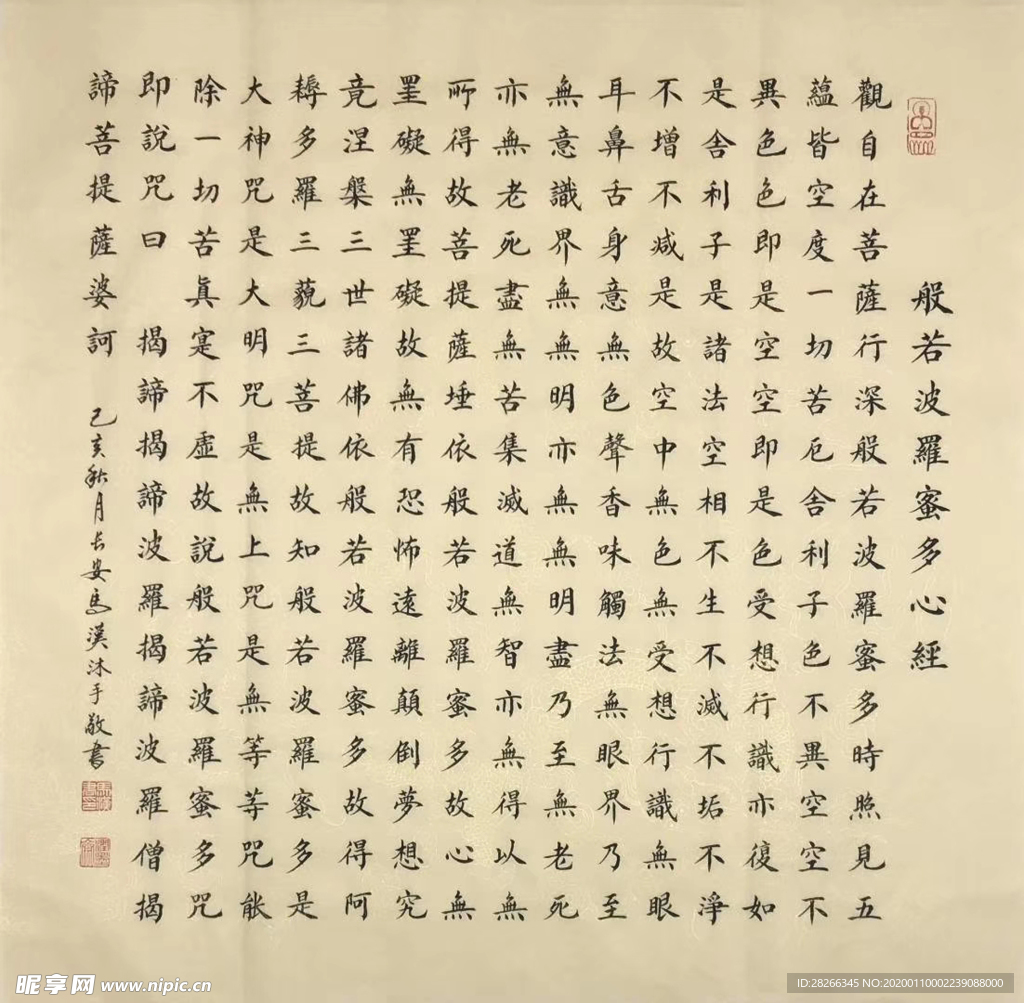 般若波羅蜜多心經
觀自在菩薩行深般若波羅蜜多時照見五
蘊皆空度一切苦厄舍利子色不異空空不
異色色即是空空即是色受想行識亦復如
是舍利子是諸法空相不生不滅不垢不淨
不增不減是故空中無色無受想行識無眼
耳鼻舌身意無色聲香味觸法無眼界乃至
無意識界無無明亦無無明盡乃至無老死
亦無老死盡無苦集滅道無智亦無得以無
所得故菩提薩埵依般若波羅蜜多故心無
罣礙無罣礙故無有恐怖遠離顛倒夢想究
竟涅槃三世諸佛依般若波羅蜜多故得阿
耨多羅三藐三菩提故知般若波羅蜜多是
大神咒是大明咒是無上咒是無等等咒能
除一切苦真寔不虛故說般若波羅蜜多咒
即說咒曰 揭諦揭諦波羅揭諦波羅僧揭
諦菩提薩婆訶 己亥秋月长安馬漢沐手敬書
昵享网 www.nipic.cn
ID:28266345 NO:20200110002239088000